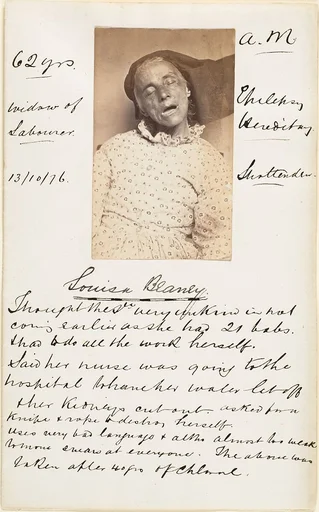 62 yrs.
a. M
widow of
Labourer.
Epilepsy
Hereditary
13/10/76.
Shottenden.
Louisa Beaney.
Thought the Dr very unkind in not
coming earlier as she had 21 babs.
& had to do all the work herself.
Said her nurse was going to the
hospital to have her water let off
& her kidneys cut out - asked for a
knife & rope to destroy herself.
uses very bad language & altho almost too weak
to move swears at everyone. The above was
taken after 40 grs of Chloral.